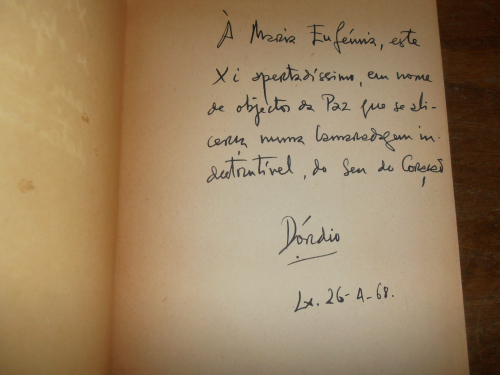 À Maria Eugénia, este
Xi apertadíssimo, em nome
de objectos da Paz que se ali-
cerça numa Camaradagem in-
destrutível, do seu do Coração,
Dórdio
Lx. 26-4-68.